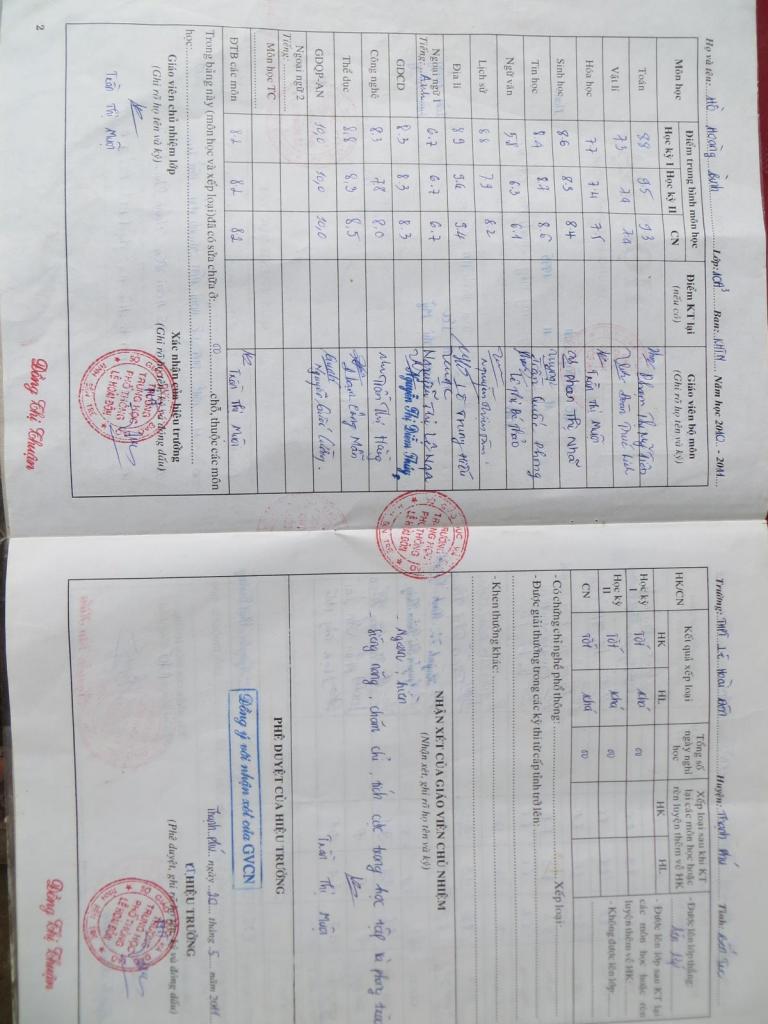 Họ và tên: Hồ Hoàng Bình Lớp: 10A3 Ban: KHTN Năm học 2010 - 2011
Môn học Điểm trung bình môn học Điểm KT lại (nếu có) Giáo viên bộ môn (Ghi rõ họ tên và ký)
Học kỳ I Học kỳ II CN
Toán 8.8 9.5 9.3 Phạm Thùy Tiên
Vật lí 7.3 7.2 7.2
Hóa học 7.7 7.4 7.5 Trần Thị Mười
Sinh học 8.6 8.3 8.4 Phan Thị Nhã
Tin học 8.4 8.7 8.6 Trần Quốc Phong
Ngữ văn 5.8 6.3 6.1 Lê Thị Bé Thảo
Lịch sử 8.8 7.9 8.2
Địa lí 8.9 9.6 9.4 Lê Trung Hiếu
Ngoại ngữ 1 Tiếng: Anh 6.7 6.7 6.7 Nguyễn Thị Lê Nga
GDCD 8.3 8.3 8.3 Nguyễn Thị Diễm Thúy
Công nghệ 8.3 7.8 8.0 Trần Thu Hằng
Thể dục 8.8 8.3 8.5 Phạm Công Mẫn
GDQP-AN 10,0 10,0 10,0 Nguyễn Quốc Cường
Ngoại ngữ 2 Tiếng:
Môn học TC
ĐTB các môn 8.2 8.2 8.2 Trần Thị Mười
Trong bảng này (môn học và xếp loại) đã có sửa chữa ở: 00 chỗ, thuộc các môn
học:
Giáo viên chủ nhiệm lớp
(Ghi rõ họ tên và ký)
Trần Thị Mười
Xác nhận của hiệu trưởng
(Ghi rõ họ tên, ký và đóng dấu)
TRƯỜNG
TRUNG HỌC
PHỔ THÔNG
LÊ HOÀI ĐÔN
Đồng Thị Thuận
2
TRƯỜNG
TRUNG HỌC
PHỔ THÔNG
LÊ HOÀI ĐÔN
BẾN TRE
Trường: THPT Lê Hoài Đôn Huyện: Thạnh Phú Tỉnh: Bến Tre
HK/CN Kết quả xếp loại Tổng số ngày nghỉ học Xếp loại sau khi KT lại các môn học hoặc rèn luyện thêm về HK
HK HL HK HL
Học kỳ I Tốt Khá 00
Học kỳ II Tốt Khá 00
CN Tốt Khá 00
- Được lên lớp thẳng:
Lên lớp
- Được lên lớp sau KT lại
các môn học hoặc rèn
luyện thêm về HK:
- Không được lên lớp:
- Có chứng chỉ nghề phổ thông: Xếp loại:
- Được giải thưởng trong các kỳ thi từ cấp tỉnh trở lên:
- Khen thưởng khác:
NHẬN XÉT CỦA GIÁO VIÊN CHỦ NHIỆM
(Nhận xét, ghi rõ họ tên và ký)
- Ngoan, hiền
- Siêng năng, chăm chỉ, tích cực trong học tập và phong trào
Trần Thị Mười
PHÊ DUYỆT CỦA HIỆU TRƯỞNG
Đồng ý với nhận xét của GVCN
Thạnh Phú, ngày 20 tháng 5 năm 2011
HIỆU TRƯỞNG
(Phê duyệt, ghi rõ họ tên, ký và đóng dấu)
TRƯỜNG
TRUNG HỌC
PHỔ THÔNG
LÊ HOÀI ĐÔN
Đồng Thị Thuận